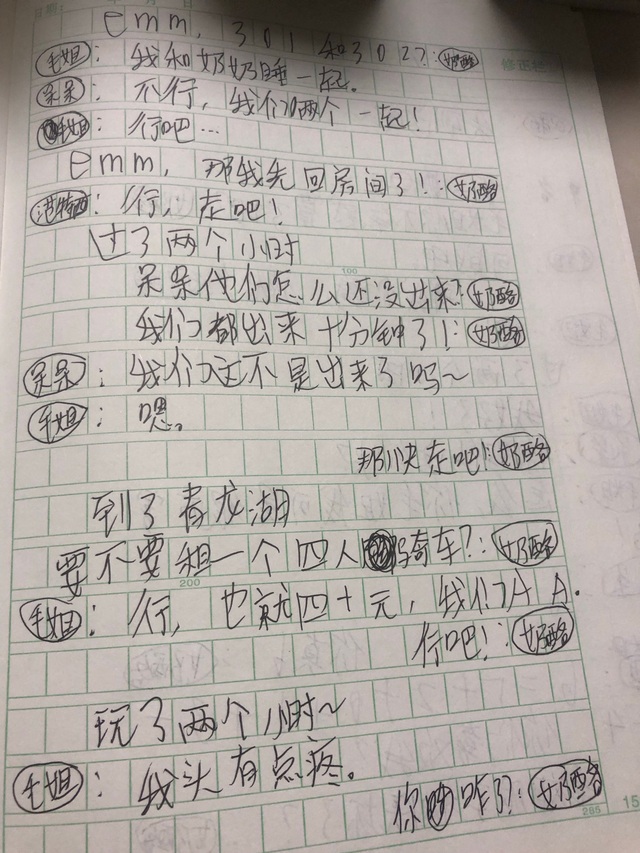 emm，301和302?:奶酪
毛姐：我和奶奶睡一起.
呆呆：不行，我们两个一起！
毛姐：行吧…
emm，那我先回房间了！:奶酪
行，走吧！
过了两个小时
呆呆他们怎么还没出来?:奶酪
我们都出来十分钟了！:奶酪
呆呆：我们这不是出来了吗~
毛姐：嗯。
那快走吧！:奶酪
到了青龙湖
要不要租一个四人骑车?:奶酪
毛姐：行，也就四十元，我们AA.
行吧！:奶酪
玩了两个小时~
毛姐：我头有点疼。
你咋了?:奶酪
100
200
285
15